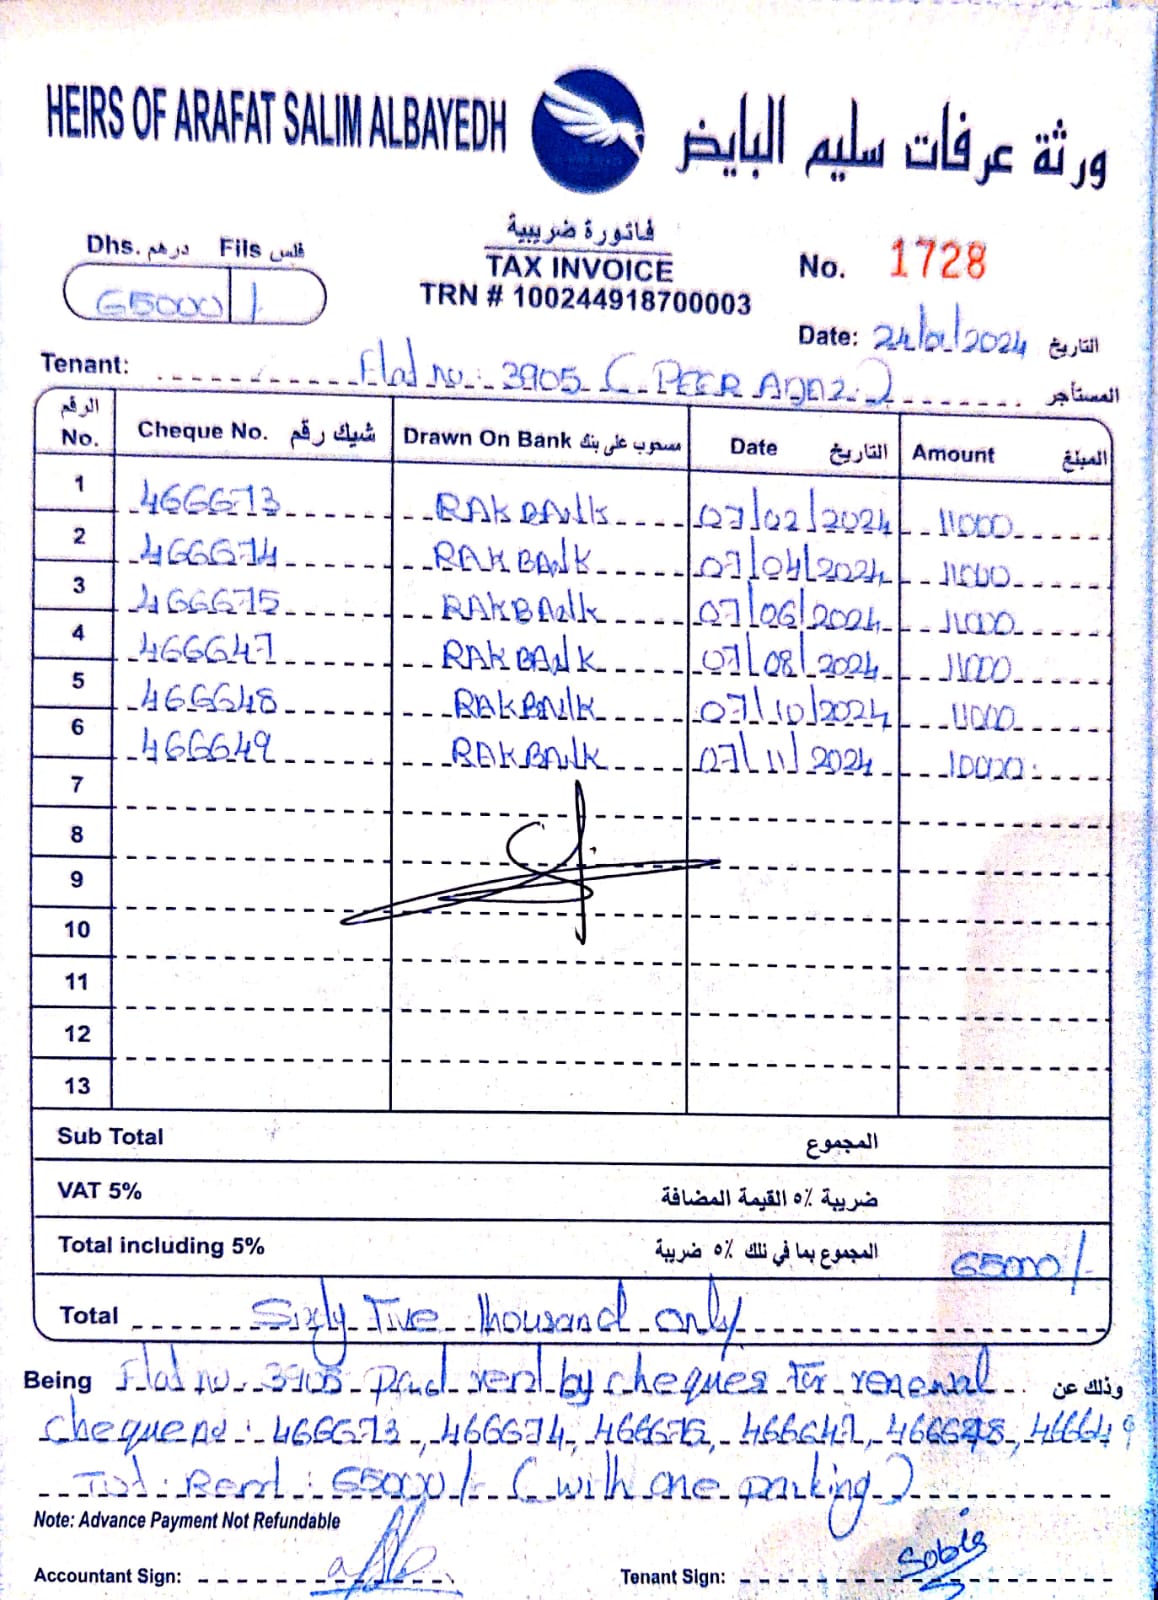 HEIRS OF ARAFAT SALIM ALBAYEDH ورثة عرفات سليم البايض
فاتورة ضريبية
TAX INVOICE
TRN # 100244918700003
Dhs. درهم Fils فلس
65000 /-
No. 1728
Date: 24/01/2024 التاريخ
Tenant: Flat no: 3905 ( PEER AJAZ ) المستأجر
الرقم No. Cheque No. شيك رقم Drawn On Bank مسحوب على بنك Date التاريخ Amount المبلغ
1 466673 RAKBANK 07/02/2024 11000
2 466674 RAKBANK 07/04/2024 11000
3 466675 RAKBANK 07/06/2024 11000
4 466647 RAKBANK 07/08/2024 11000
5 466648 RAKBANK 07/10/2024 11000
6 466649 RAKBANK 07/11/2024 10000
7
8
9
10
11
12
13
Sub Total المجموع
VAT 5% ضريبة ٥٪ القيمة المضافة
Total including 5% المجموع بما في ذلك ٥٪ ضريبة 65000/-
Total Sixty Five thousand only
Being Flat no. 3905 paid rent by cheques for renewal وذلك عن
Cheque no: 466673, 466674, 466675, 466647, 466648, 466649
Tot: Rent: 65000/- (with one parking)
Note: Advance Payment Not Refundable
Accountant Sign: Tenant Sign: